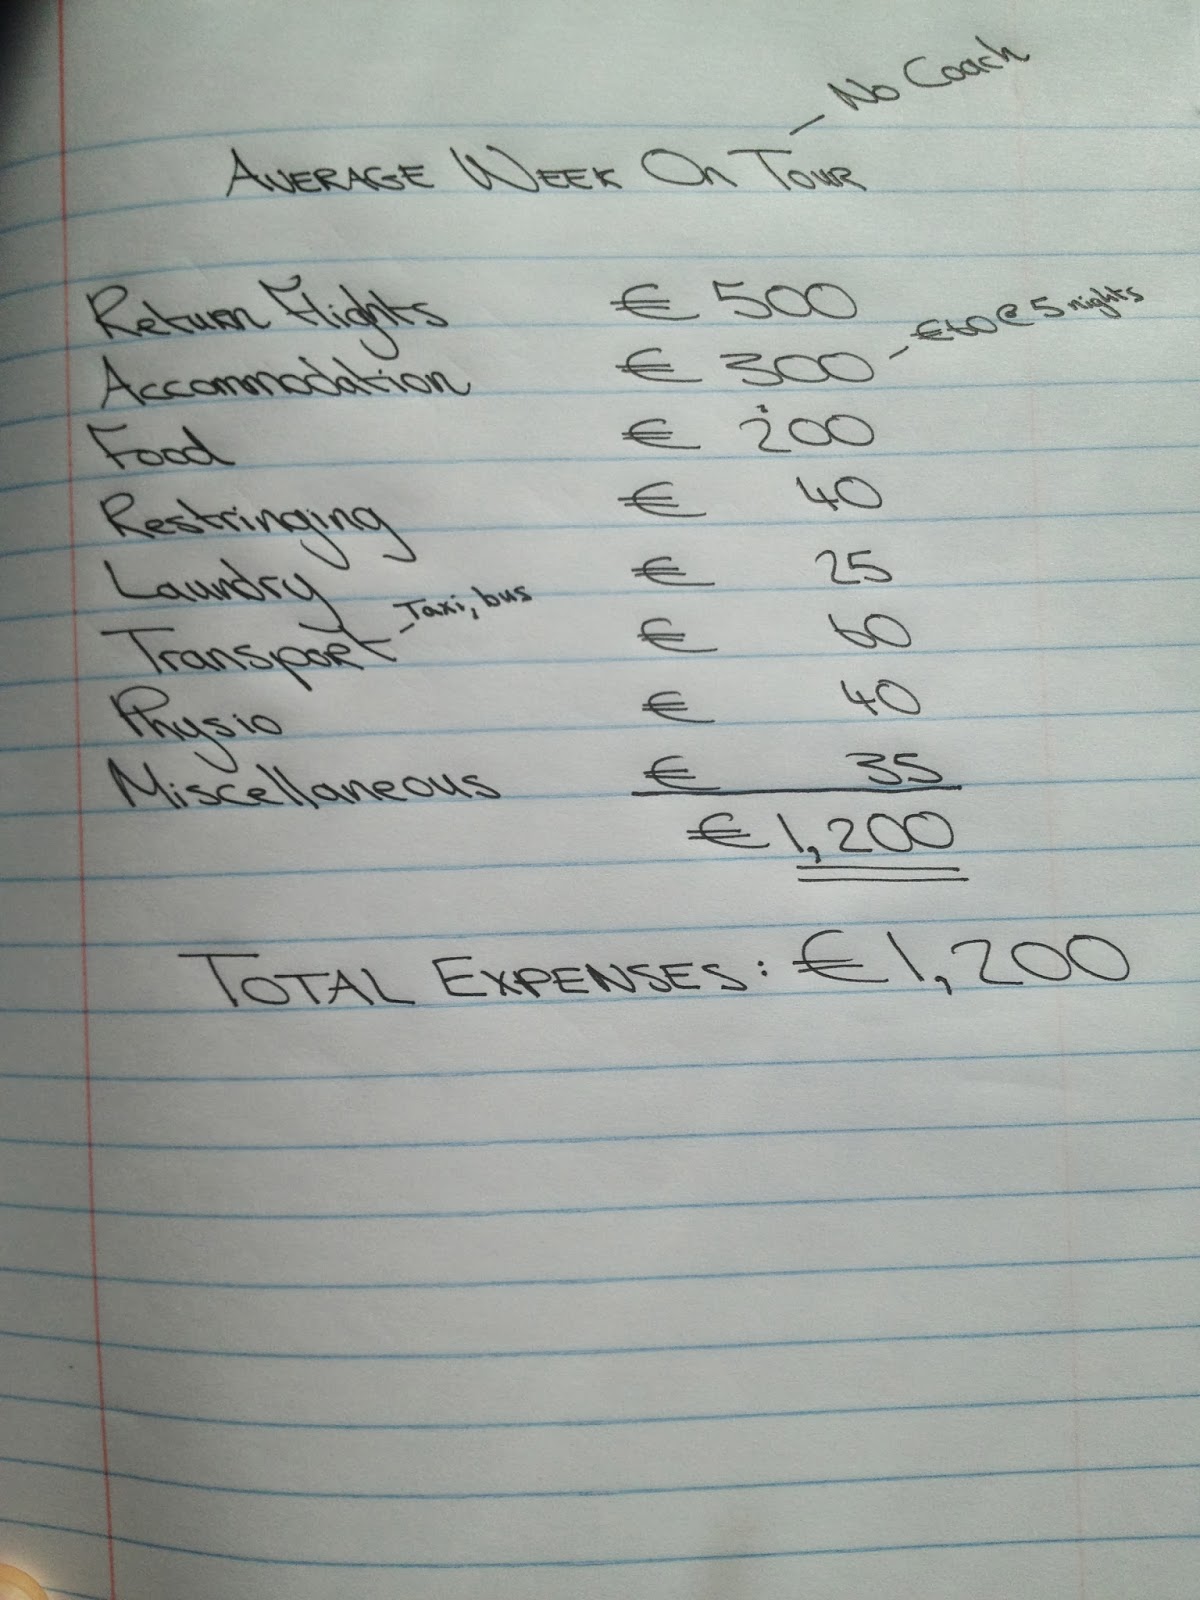 - No Coach
AVERAGE WEEK ON TOUR
Return Flights € 500
Accommodation € 300 - €60 @ 5 nights
Food € 200
Restringing € 40
Laundry € 25
Transport - Taxi, bus € 60
Physio € 40
Miscellaneous € 35
€ 1,200
TOTAL EXPENSES: € 1,200